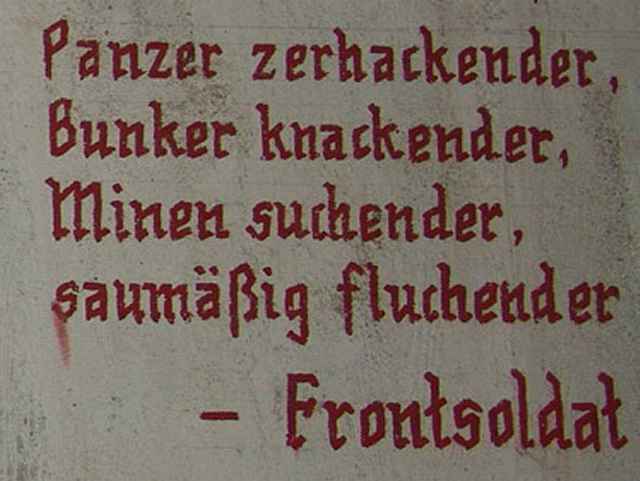 Panzer zerhackender,
Bunker knackender,
Minen suchender,
saumäßig fluchender
- Frontsoldat